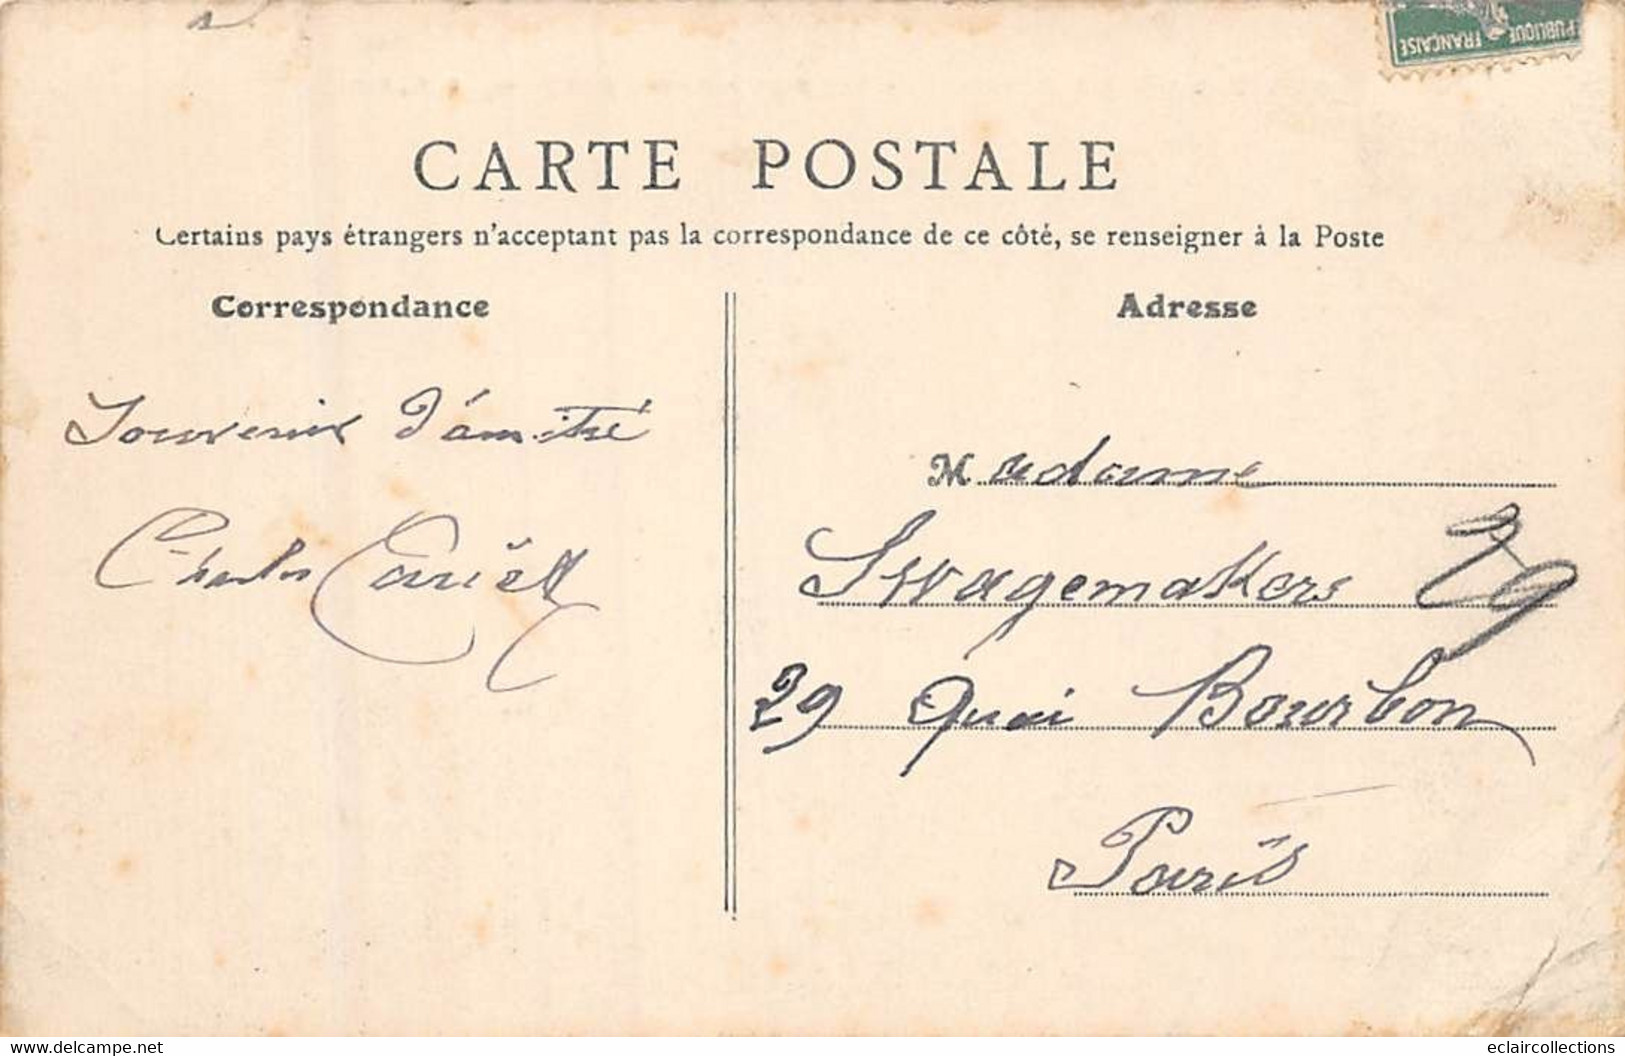 PUBLIQUE FRANÇAISE
CARTE POSTALE
Certains pays étrangers n'acceptant pas la correspondance de ce côté, se renseigner à la Poste
Correspondance
Adresse
Souvenir d'amitié
Charles
Madame
Swagemakers
29
29 Quai Bourbon
Paris
delcampe.net
eclaircollections